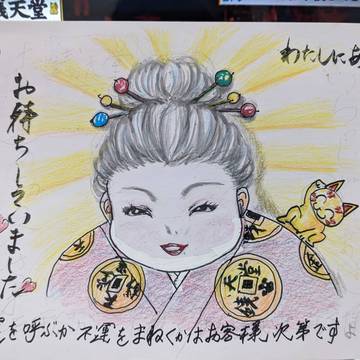 天堂
わたしにあ
お待ちしていました
を呼ぶか不運をまねくかはお客様次第ですよ